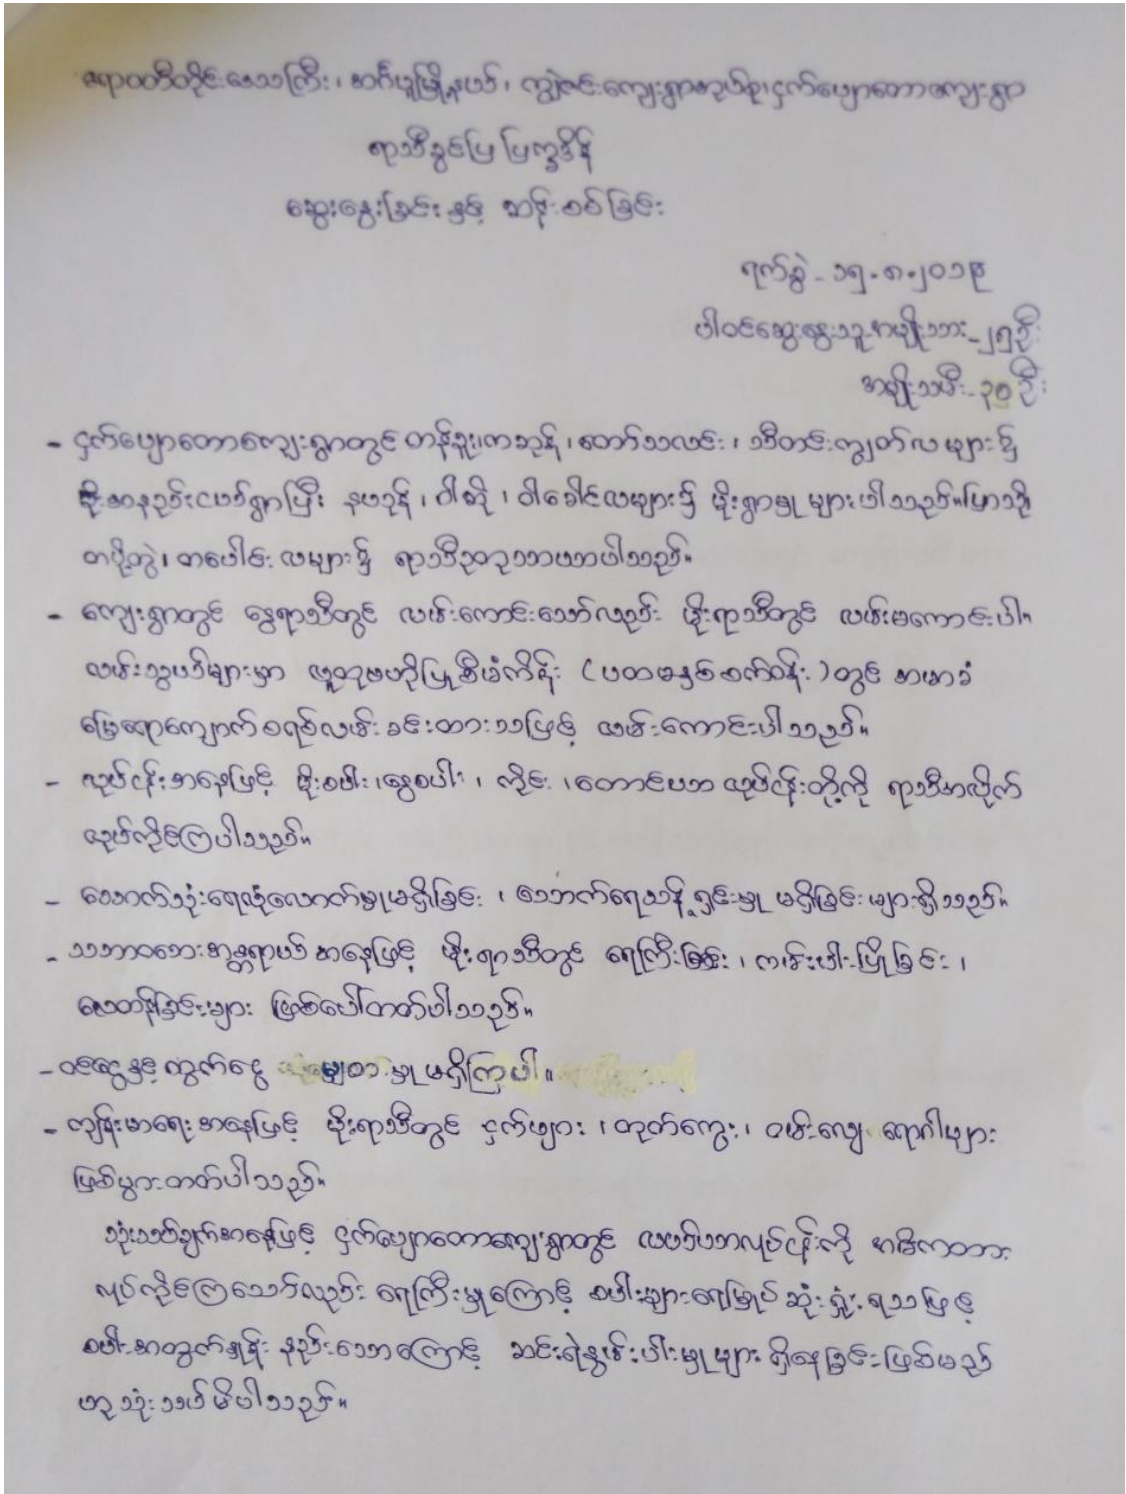 ဧရာဝတီတိုင်းဒေသကြီး၊ အင်္ဂပူမြို့နယ်၊ ကျွဲဇင်းကျေးရွာအုပ်စု၊ ငှက်ပျောတောကျေးရွာ
ရာသီခွင်ပြ ပြက္ခဒိန်
ဆွေးနွေးခြင်းနှင့် ဆန်းစစ်ခြင်း
ရက်စွဲ - ၁၅.၈.၂၀၁၉
ပါဝင်ဆွေးနွေးသူ အမျိုးသား - ၂၅ ဦး
အမျိုးသမီး - ၃၀ ဦး
- ငှက်ပျောတောကျေးရွာတွင် တန်ခူး၊ ကဆုန်၊ တော်သလင်း၊ သီတင်းကျွတ်လများ၌
မိုးအနည်းငယ်ရွာပြီး နယုန်၊ ဝါဆို၊ ဝါခေါင်လများ၌ မိုးရွာမှုများပါသည်။ ပြာသို၊
တပို့တွဲ၊ တပေါင်းလများ၌ ရာသီဥတုသာယာပါသည်။
- ကျေးရွာတွင် နွေရာသီတွင် လမ်းကောင်းသော်လည်း မိုးရာသီတွင် လမ်းမကောင်းပါ။
လမ်းသွယ်များမှာ လူထုဗဟိုပြုစီမံကိန်း (ပထမနှစ်စက်ဝန်း) တွင် အမာခံ
မြေချောကျောက်စရစ်လမ်း ခင်းထားသဖြင့် လမ်းကောင်းပါသည်။
- လုပ်ငန်းအနေဖြင့် မိုးစပါး၊ နွေစပါး၊ ကိုင်း၊ တောင်ယာ လုပ်ငန်းတို့ကို ရာသီအလိုက်
လုပ်ကိုင်ကြပါသည်။
- သောက်သုံးရေလုံလောက်မှုမရှိခြင်း၊ သောက်ရေသန့်ရှင်းမှု မရှိခြင်းများရှိသည်။
- သဘာဝဘေးအန္တရာယ် အနေဖြင့် မိုးရာသီတွင် ရေကြီးခြင်း၊ ကမ်းပါးပြိုခြင်း၊
လေတိုက်ခြင်းများ ဖြစ်ပေါ်တတ်ပါသည်။
- ဝင်ငွေနှင့်ထွက်ငွေ မျှတမှုမရှိကြပါ။
- ကျန်းမာရေးအနေဖြင့် မိုးရာသီတွင် ငှက်ဖျား၊ တုတ်ကွေး၊ ဝမ်းလျှော ရောဂါများ
ဖြစ်ပွားတတ်ပါသည်။
သုံးသပ်ချက်အနေဖြင့် ငှက်ပျောတောကျေးရွာတွင် လယ်ယာလုပ်ငန်းကို အဓိကထား
လုပ်ကိုင်ကြသော်လည်း ရေကြီးမှုကြောင့် စပါးများရေမြုပ်ဆုံးရှုံးရသဖြင့်
စပါးအထွက်နှုန်း နည်းသောကြောင့် ဆင်းရဲနွမ်းပါးမှုများ ရှိနေခြင်းဖြစ်မည်
ဟု သုံးသပ်မိပါသည်။